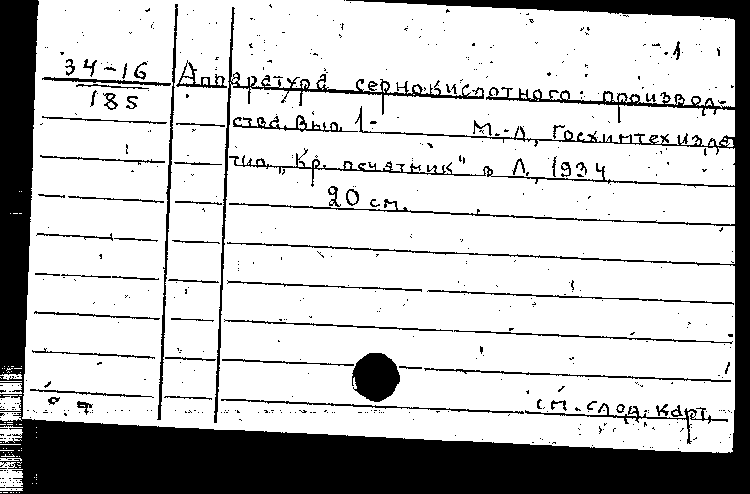 1
34-16 Аппаратура сернокислотного производ-
185 ства. Вып. 1- М.-Л., Госхимтехиздат
тип. „Кр. печатник" в Л., 1934
20 см.
см. след. карт.